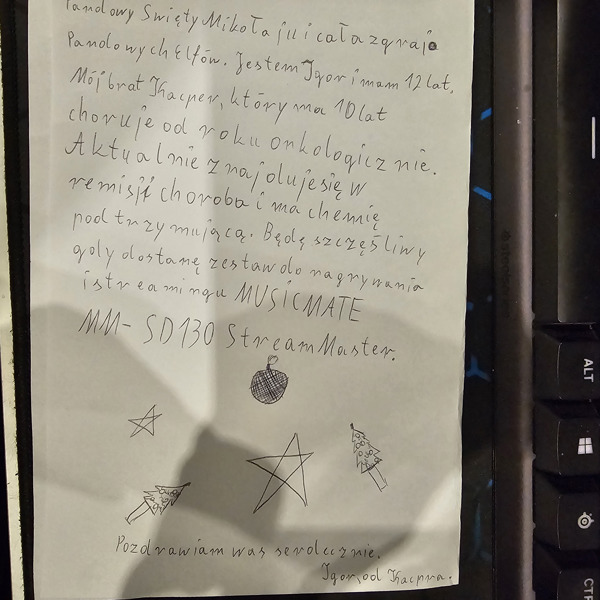 Pandowy Święty Mikołaju i cała zgrajo
Pandowych Elfów. Jestem Igor i mam 12 lat.
Mój brat Kacper, który ma 10 lat
choruje od roku onkologicznie.
Aktualnie znajduje się w
remisji choroba i ma chemię
podtrzymującą. Będę szczęśliwy
gdy dostanę zestaw do nagrywania
i streamingu MUSICMATE
MM-SD130 StreamMaster.
Pozdrawiam was serdecznie.
Igor, od Kacpra.
ALT
CTR